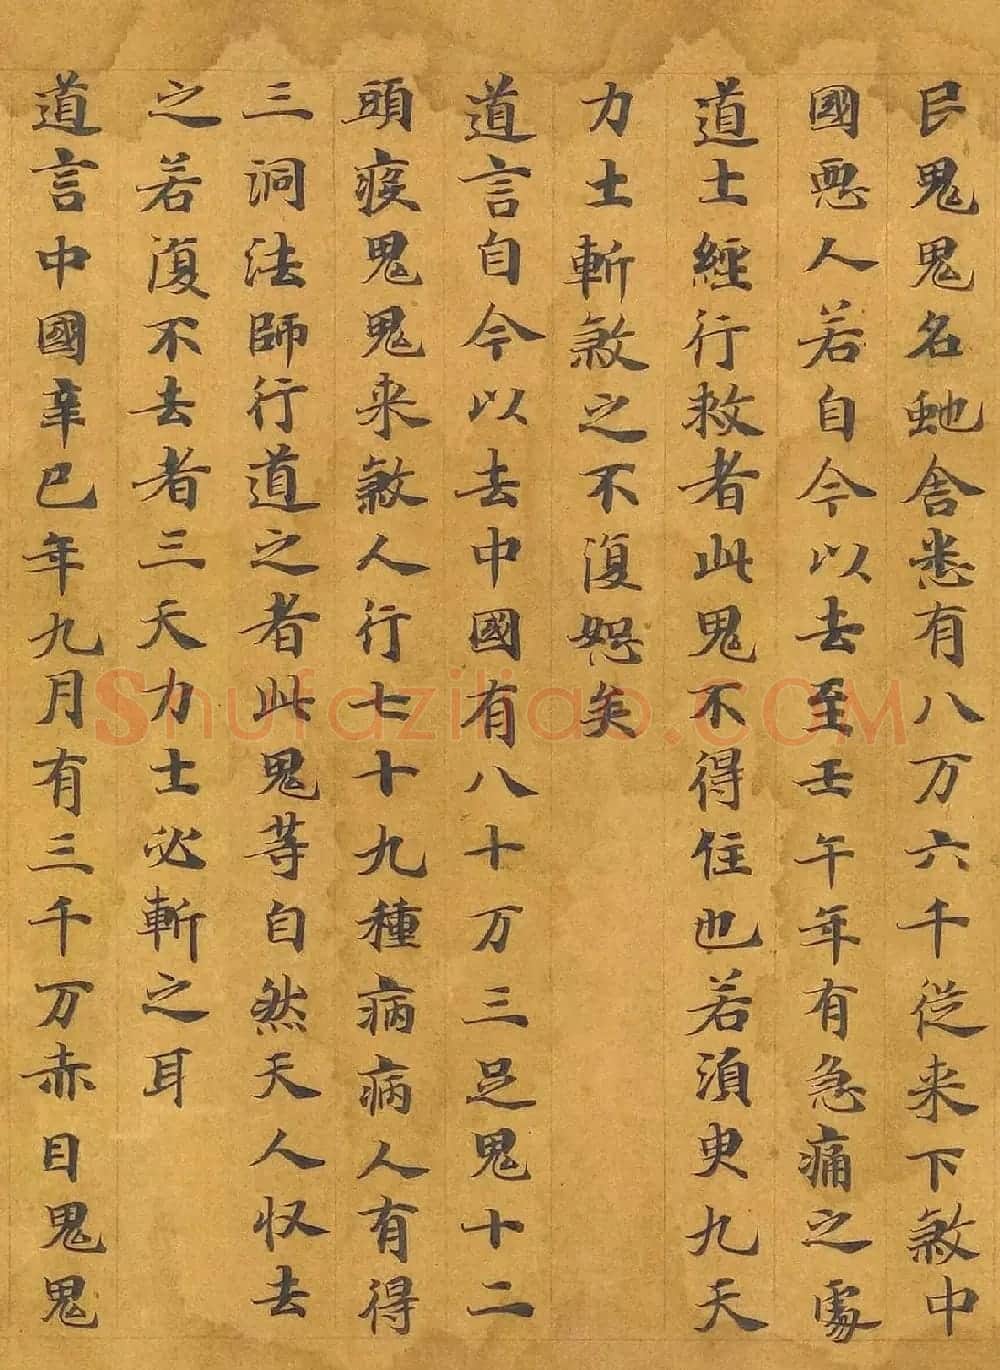 民鬼鬼名虵舍悉有八万六千從来下煞中
國惡人若自今以去至壬午年有急痛之處
道士經行救者此鬼不得住也若湏臾九天
力士斬煞之不復恕矣
道言自今以去中國有八十万三足鬼十二
頭疫鬼鬼来煞人行七十九種病病人有得
三洞法師行道之者此鬼等自然天人收去
之若復不去者三天力士必斬之耳
道言中國辛巳年九月有三千万赤目鬼鬼
Shufaziliao.COM